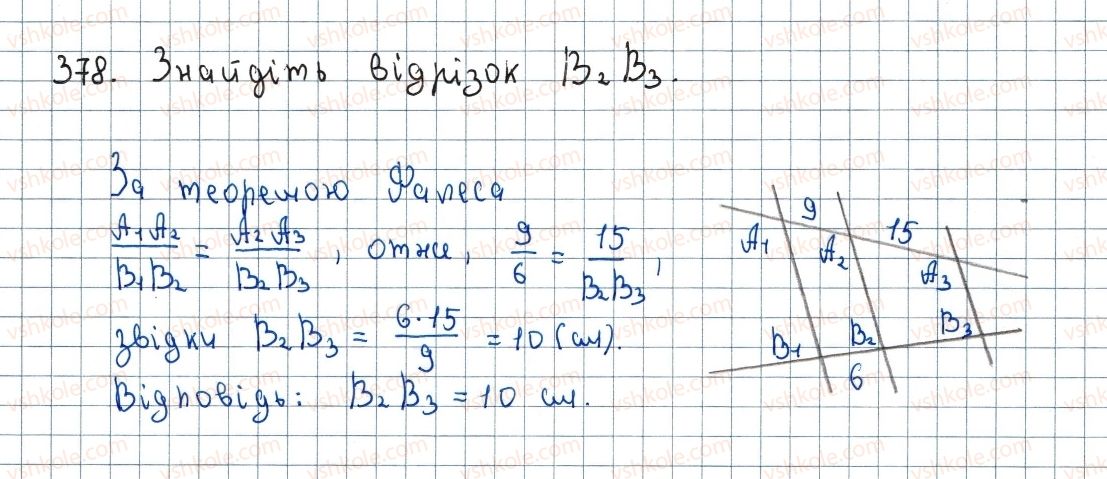 378. Знайдіть відрізок B₂B₃.
За теоремою Фалеса
A₁A₂/B₁B₂ = A₂A₃/B₂B₃, отже, 9/6 = 15/B₂B₃,
звідки B₂B₃ = 6·15/9 = 10 (см).
Відповідь: B₂B₃ = 10 см.
9
A₁ A₂ 15
A₃
B₁ B₂ B₃
6
vshkole.com